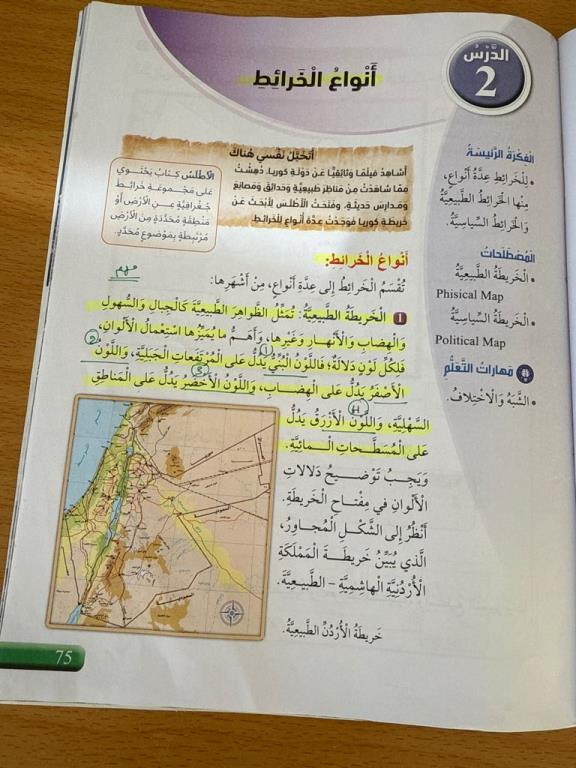 الدَّرْسُ
2
أَنْواعُ الْخَرائِطِ
الْفِكْرَةُ الرَّئيسَةُ
• لِلْخَرائِطِ عِدَّةُ أَنْواعٍ،
مِنْها الْخَرائِطُ الطَّبيعِيَّةُ
وَالْخَرائِطُ السِّياسِيَّةُ.
الْمُصْطَلَحاتُ
• الْخَريطَةُ الطَّبيعِيَّةُ
Phisical Map
• الْخَريطَةُ السِّياسِيَّةُ
Political Map
مَهاراتُ التَّعَلُّمِ
• الشَّبَهُ وَالْاخْتِلافُ.
أَتَخَيَّلُ نَفْسي هُناكَ
أُشاهِدُ فيلْمًا وَثائِقِيًّا عَنْ دَوْلَةِ كوريا، دُهِشْتُ
مِمّا شاهَدْتُ مِنْ مَناظِرَ طَبيعِيَّةٍ وَحَدائِقَ وَمَصانِعَ
وَمَدارِسَ حَديثَةٍ، وَفَتَحْتُ الْأَطْلَسَ لِأَبْحَثَ عَنْ
خَريطَةِ كوريا فَوَجَدْتُ عِدَّةَ أَنْواعٍ لِلْخَرائِطِ.
الْأَطْلَسُ كِتابٌ يَحْتَوي
عَلى مَجْموعَةِ خَرائِطَ
جُغْرافِيَّةٍ عَنِ الْأَرْضِ أَوْ
مَنْطِقَةٍ مُحَدَّدَةٍ مِنَ الْأَرْضِ
مُرْتَبِطَةٍ بِمَوْضوعٍ مُحَدَّدٍ.
أَنْواعُ الْخَرائِطِ:
مهم
تُقْسَمُ الْخَرائِطُ إِلى عِدَّةِ أَنْواعٍ، مِنْ أَشْهَرِها:
1 الْخَريطَةُ الطَّبيعِيَّةُ: تُمَثِّلُ الظَّواهِرَ الطَّبيعِيَّةَ كَالْجِبالِ وَالسُّهولِ
وَالْهِضابِ وَالْأَنْهارِ وَغَيْرِها، وَأَهَمُّ ما يُمَيِّزُها اسْتِعْمالُ الْأَلْوانِ،
فَلِكُلِّ لَوْنٍ دَلالَةٌ؛ فَاللَّوْنُ الْبُنِّيُّ يَدُلُّ عَلى الْمُرْتَفَعاتِ الْجَبَلِيَّةِ، وَاللَّوْنُ
الْأَصْفَرُ يَدُلُّ عَلى الْهِضابِ، وَاللَّوْنُ الْأَخْضَرُ يَدُلُّ عَلى الْمَناطِقِ
السَّهْلِيَّةِ، وَاللَّوْنُ الْأَزْرَقُ يَدُلُّ
عَلى الْمُسَطَّحاتِ الْمائِيَّةِ.
وَيَجِبُ تَوْضيحُ دَلالاتِ
الْأَلْوانِ في مِفْتاحِ الْخَريطَةِ.
أَنْظُرُ إِلى الشَّكْلِ الْمُجاوِرِ،
الَّذي يُبَيِّنُ خَريطَةَ الْمَمْلَكَةِ
الْأُرْدُنِيَّةِ الْهاشِمِيَّةِ - الطَّبيعِيَّةَ.
خَريطَةُ الْأُرْدُنِّ الطَّبيعِيَّةُ.
75